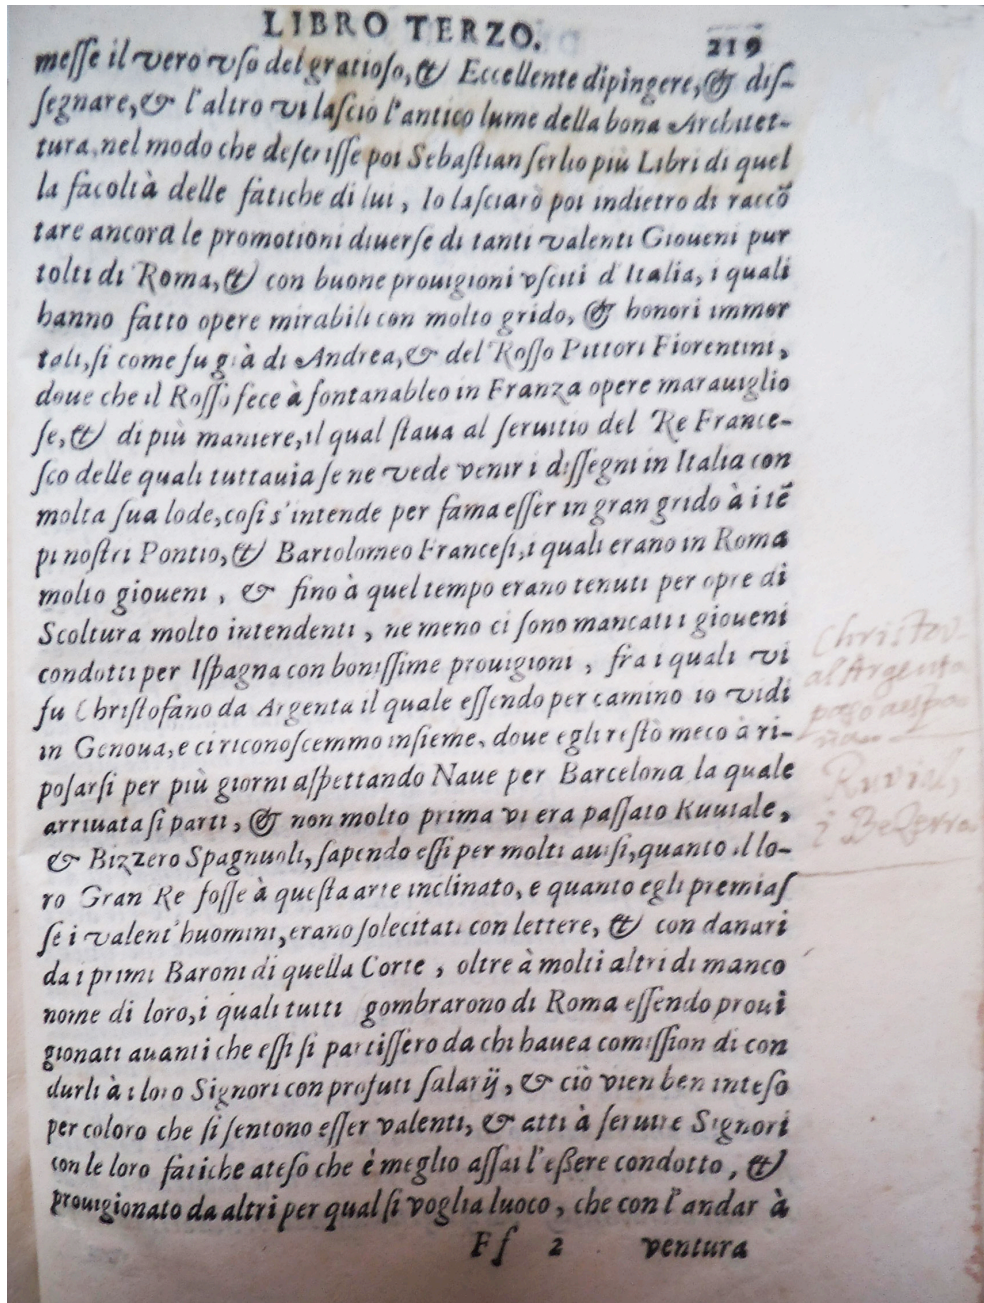 LIBRO TERZO.
219
messe il vero vso del gratioso, & Eccellente dipingere, & dis-
segnare, & l'altro vi lasciò l'antico lume della bona Architet-
tura, nel modo che descrisse poi Sebastian serlio più Libri di quel
la facoltà delle fatiche di lui, Io lasciarò poi indietro di raccõ
tare ancora le promotioni diuerse di tanti valenti Gioueni pur
tolti di Roma, & con buone prouigioni vsciti d'Italia, i quali
hanno fatto opere mirabili con molto grido, & honori immor
tali, si come fu già di Andrea, & del Rosso Pittori Fiorentini,
doue che il Rosso fece à fontanableo in Franza opere marauiglio
se, & di più maniere, il qual staua al seruitio del Re France-
sco delle quali tuttauia se ne vede venir i dissegni in Italia con
molta sua lode, cosi s'intende per fama esser in gran grido à i tẽ
pi nostri Pontio, & Bartolomeo Francesi, i quali erano in Roma
molto gioueni, & fino à quel tempo erano tenuti per opre di
Scoltura molto intendenti, ne meno ci sono mancati i gioueni
condotti per Ispagna con bonissime prouigioni, fra i quali vi
fu Christofano da Argenta il quale essendo per camino io vidi
in Genoua, e ci riconoscemmo insieme, doue egli restò meco à ri-
posarsi per più giorni aspettando Naue per Barcelona la quale
arriuata si partì, & non molto prima vi era passato Ruuiale,
& Bizzero Spagnuoli, sapendo essi per molti auisi, quanto il lo-
ro Gran Re fosse à questa arte inclinato, e quanto egli premias
se i valent'huomini, erano solecitati con lettere, & con danari
da i primi Baroni di quella Corte, oltre à molti altri di manco
nome di loro, i quali tutti gombrarono di Roma essendo proui
gionati auanti che essi si partissero da chi hauea comission di con
durli à i loro Signori con profuti salarij, & ciò vien ben inteso
per coloro che si sentono esser valenti, & atti à seruire Signori
con le loro fatiche ateso che è meglio assai l'eßere condotto, &
prouigionato da altri per qual si voglia luoco, che con l'andar à
Ff 2 ventura
al Argenta
Ruvial,
i Bezerra